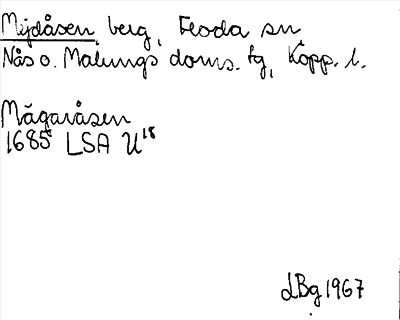 Mijdåsen, berg, Floda sn,
Nås o. Malungs doms. tg, Kopp. l.
Mågaråsen
1685 LSA U18
LBg 1967